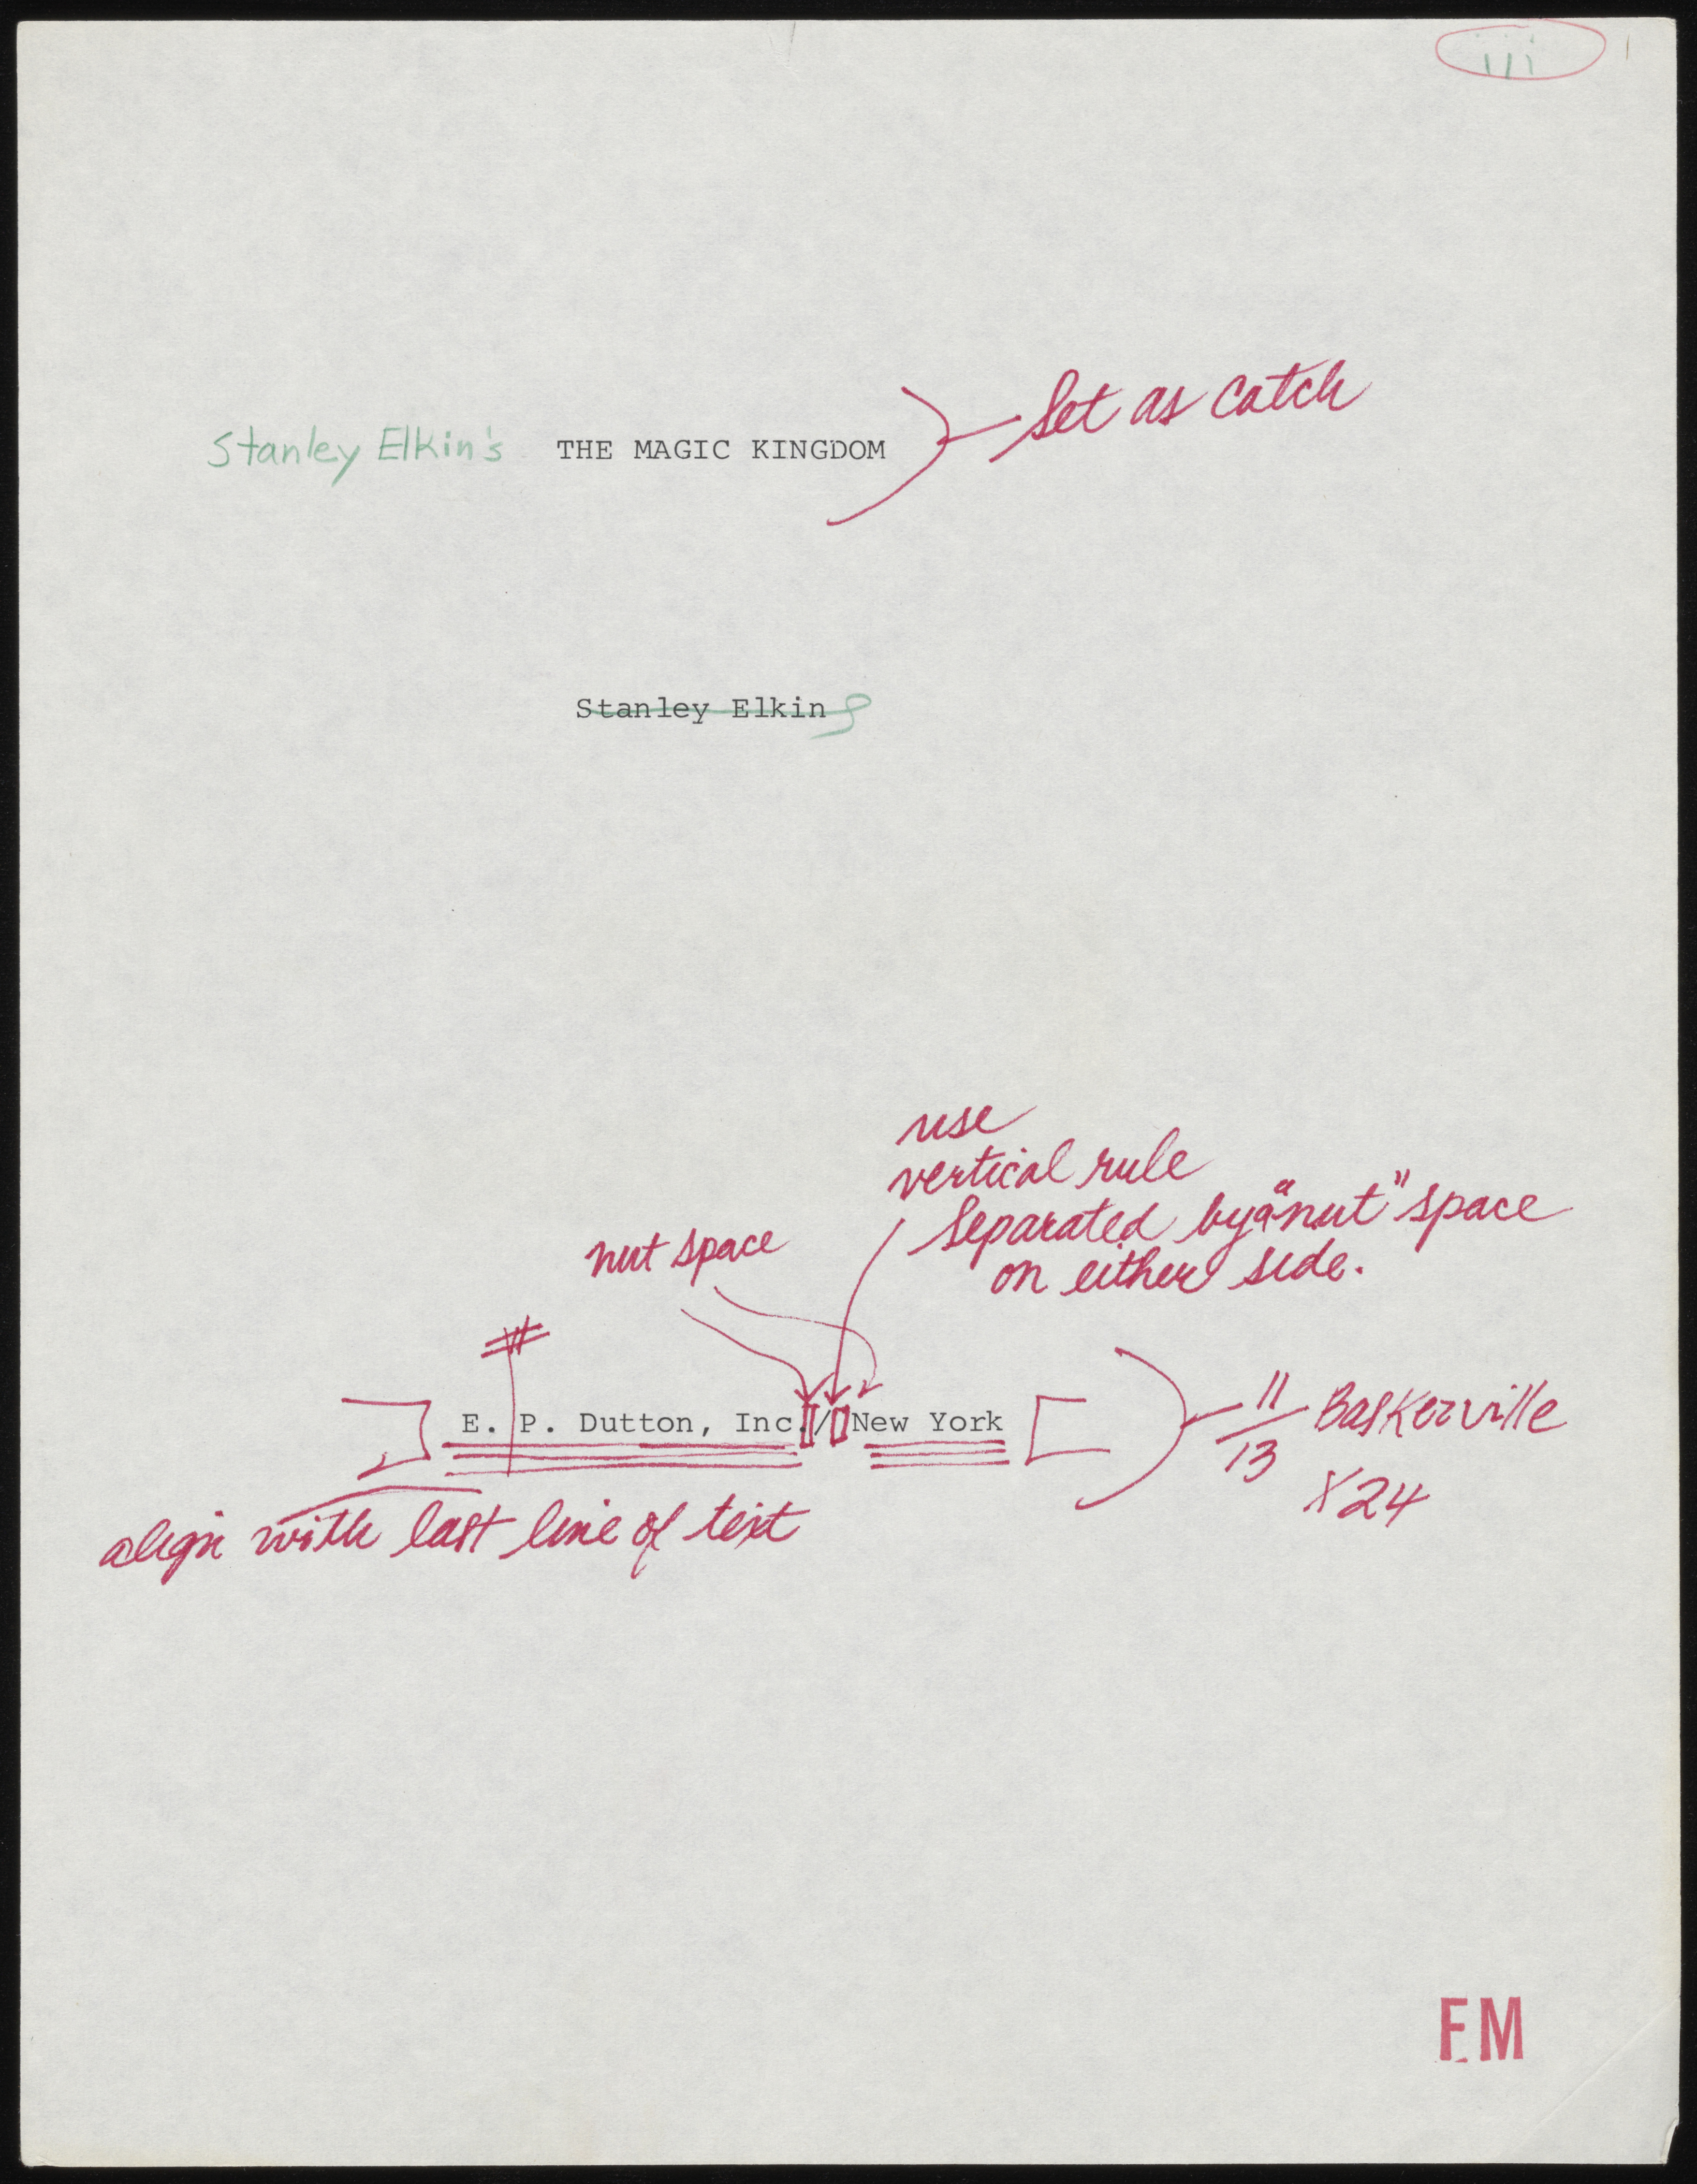 iii
Set as catch
Stanley Elkin's THE MAGIC KINGDOM
Stanley Elkin
use
vertical rule
separated by a "nut" space
on either side.
nut space
#
E. P. Dutton, Inc./New York
11/13 Baskerville
x 24
align with last line of text
FM